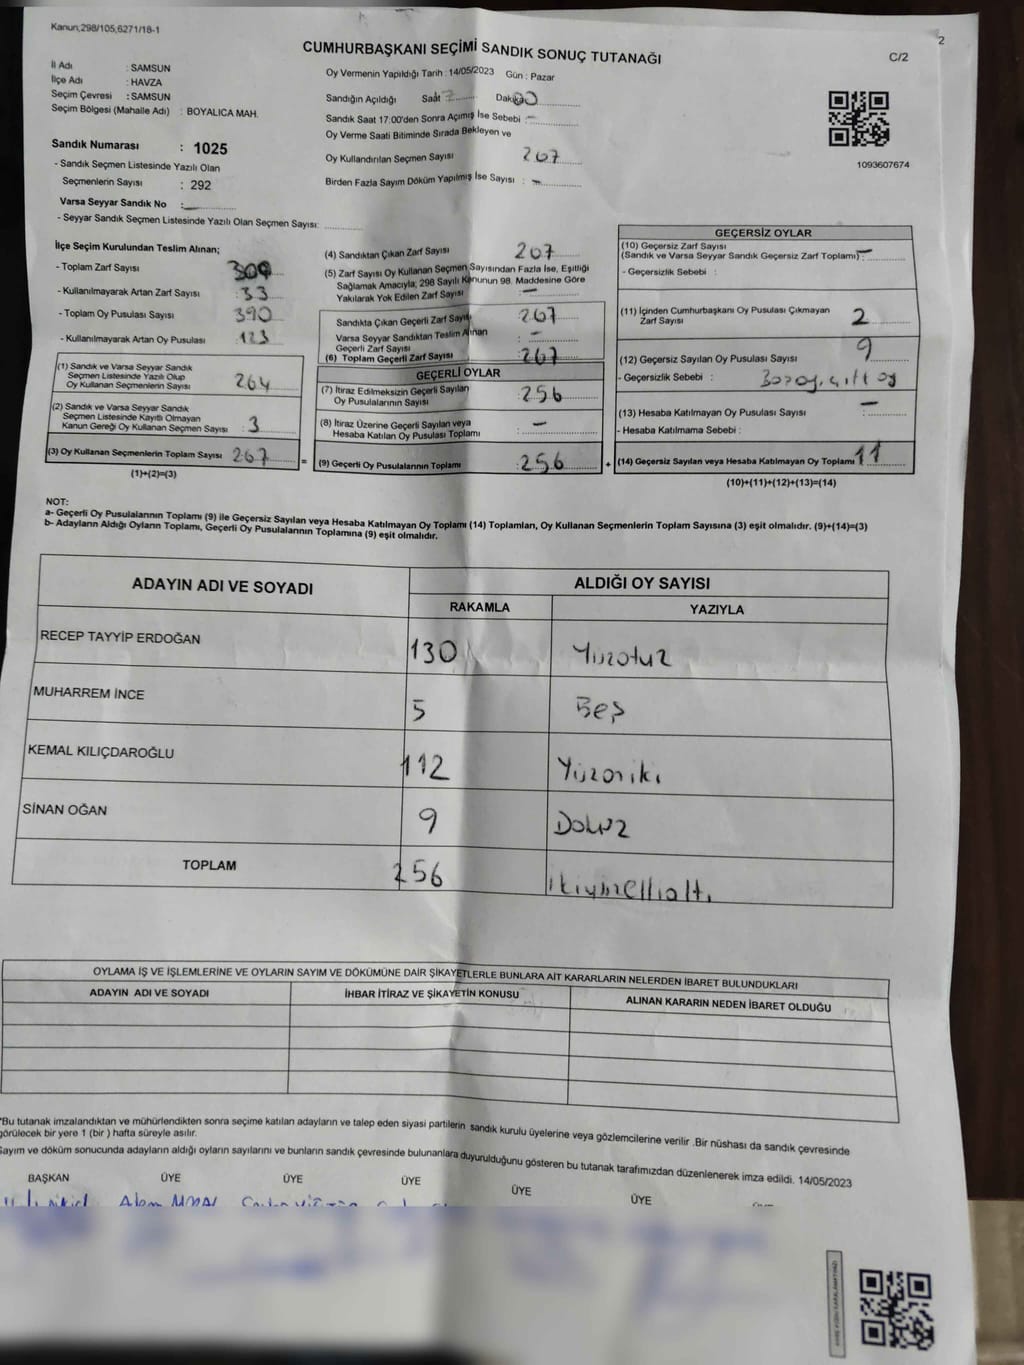 Kanun,298/105,6271/18-1
2
CUMHURBAŞKANI SEÇİMİ SANDIK SONUÇ TUTANAĞI
C/2
İl Adı : SAMSUN
İlçe Adı : HAVZA
Seçim Çevresi : SAMSUN
Seçim Bölgesi (Mahalle Adı) : BOYALICA MAH.
Sandık Numarası : 1025
- Sandık Seçmen Listesinde Yazılı Olan
Seçmenlerin Sayısı : 292
Varsa Seyyar Sandık No :
- Seyyar Sandık Seçmen Listesinde Yazılı Olan Seçmen Sayısı:
Oy Vermenin Yapıldığı Tarih : 14/05/2023 Gün : Pazar
Sandığın Açıldığı Saat 7 Dakika
Sandık Saat 17:00'den Sonra Açımış İse Sebebi : -
Oy Verme Saati Bitiminde Sırada Bekleyen ve
Oy Kullandırılan Seçmen Sayısı 267
Birden Fazla Sayım Döküm Yapılmış İse Sayısı : -
1093607674
İlçe Seçim Kurulundan Teslim Alınan;
- Toplam Zarf Sayısı
- Kullanılmayarak Artan Zarf Sayısı : 33
- Toplam Oy Pusulası Sayısı 390
- Kullanılmayarak Artan Oy Pusulası : 123
(1) Sandık ve Varsa Seyyar Sandık
Seçmen Listesinde Yazılı Olup
Oy Kullanan Seçmenlerin Sayısı 264
(2) Sandık ve Varsa Seyyar Sandık
Seçmen Listesinde Kayıtlı Olmayan
Kanun Gereği Oy Kullanan Seçmen Sayısı : 3
(3) Oy Kullanan Seçmenlerin Toplam Sayısı 267
(1)+(2)=(3)
=
(4) Sandıktan Çıkan Zarf Sayısı 267
(5) Zarf Sayısı Oy Kullanan Seçmen Sayısından Fazla İse, Eşitliği
Sağlamak Amacıyla; 298 Sayılı Kanunun 98. Maddesine Göre
Yakılarak Yok Edilen Zarf Sayısı : -
Sandıkta Çıkan Geçerli Zarf Sayısı : 267
Varsa Seyyar Sandıktan Teslim Alınan
Geçerli Zarf Sayısı : -
(6) Toplam Geçerli Zarf Sayısı : 267
GEÇERLİ OYLAR
(7) İtiraz Edilmeksizin Geçerli Sayılan
Oy Pusulalarının Sayısı : 256
(8) İtiraz Üzerine Geçerli Sayılan veya
Hesaba Katılan Oy Pusulası Toplamı : -
(9) Geçerli Oy Pusulalarının Toplamı : 256
+
GEÇERSİZ OYLAR
(10) Geçersiz Zarf Sayısı
(Sandık ve Varsa Seyyar Sandık Geçersiz Zarf Toplamı) : -
- Geçersizlik Sebebi :
(11) İçinden Cumhurbaşkanı Oy Pusulası Çıkmayan
Zarf Sayısı 2
(12) Geçersiz Sayılan Oy Pusulası Sayısı 9
- Geçersizlik Sebebi :
(13) Hesaba Katılmayan Oy Pusulası Sayısı : -
- Hesaba Katılmama Sebebi :
(14) Geçersiz Sayılan veya Hesaba Katılmayan Oy Toplamı 11
(10)+(11)+(12)+(13)=(14)
NOT:
a- Geçerli Oy Pusulalarının Toplamı (9) ile Geçersiz Sayılan veya Hesaba Katılmayan Oy Toplamı (14) Toplamları, Oy Kullanan Seçmenlerin Toplam Sayısına (3) eşit olmalıdır. (9)+(14)=(3)
b- Adayların Aldığı Oyların Toplamı, Geçerli Oy Pusulalarının Toplamına (9) eşit olmalıdır.
ADAYIN ADI VE SOYADI
ALDIĞI OY SAYISI
RAKAMLA YAZIYLA
RECEP TAYYİP ERDOĞAN 130 Yüzotuz
MUHARREM İNCE 5 Beş
KEMAL KILIÇDAROĞLU 112 Yüzoniki
SİNAN OĞAN 9 Dokuz
TOPLAM 256 ikiyüzellialtı
OYLAMA İŞ VE İŞLEMLERİNE VE OYLARIN SAYIM VE DÖKÜMÜNE DAİR ŞİKAYETLERLE BUNLARA AİT KARARLARIN NELERDEN İBARET BULUNDUKLARI
ADAYIN ADI VE SOYADI İHBAR İTİRAZ VE ŞİKAYETİN KONUSU ALINAN KARARIN NEDEN İBARET OLDUĞU
*Bu tutanak imzalandıktan ve mühürlendikten sonra seçime katılan adayların ve talep eden siyasi partilerin sandık kurulu üyelerine veya gözlemcilerine verilir .Bir nüshası da sandık çevresinde
görülecek bir yere 1 (bir ) hafta süreyle asılır.
Sayım ve döküm sonucunda adayların aldığı oyların sayılarını ve bunların sandık çevresinde bulunanlara duyurulduğunu gösteren bu tutanak tarafımızdan düzenlenerek imza edildi. 14/05/2023
BAŞKAN ÜYE ÜYE ÜYE ÜYE ÜYE